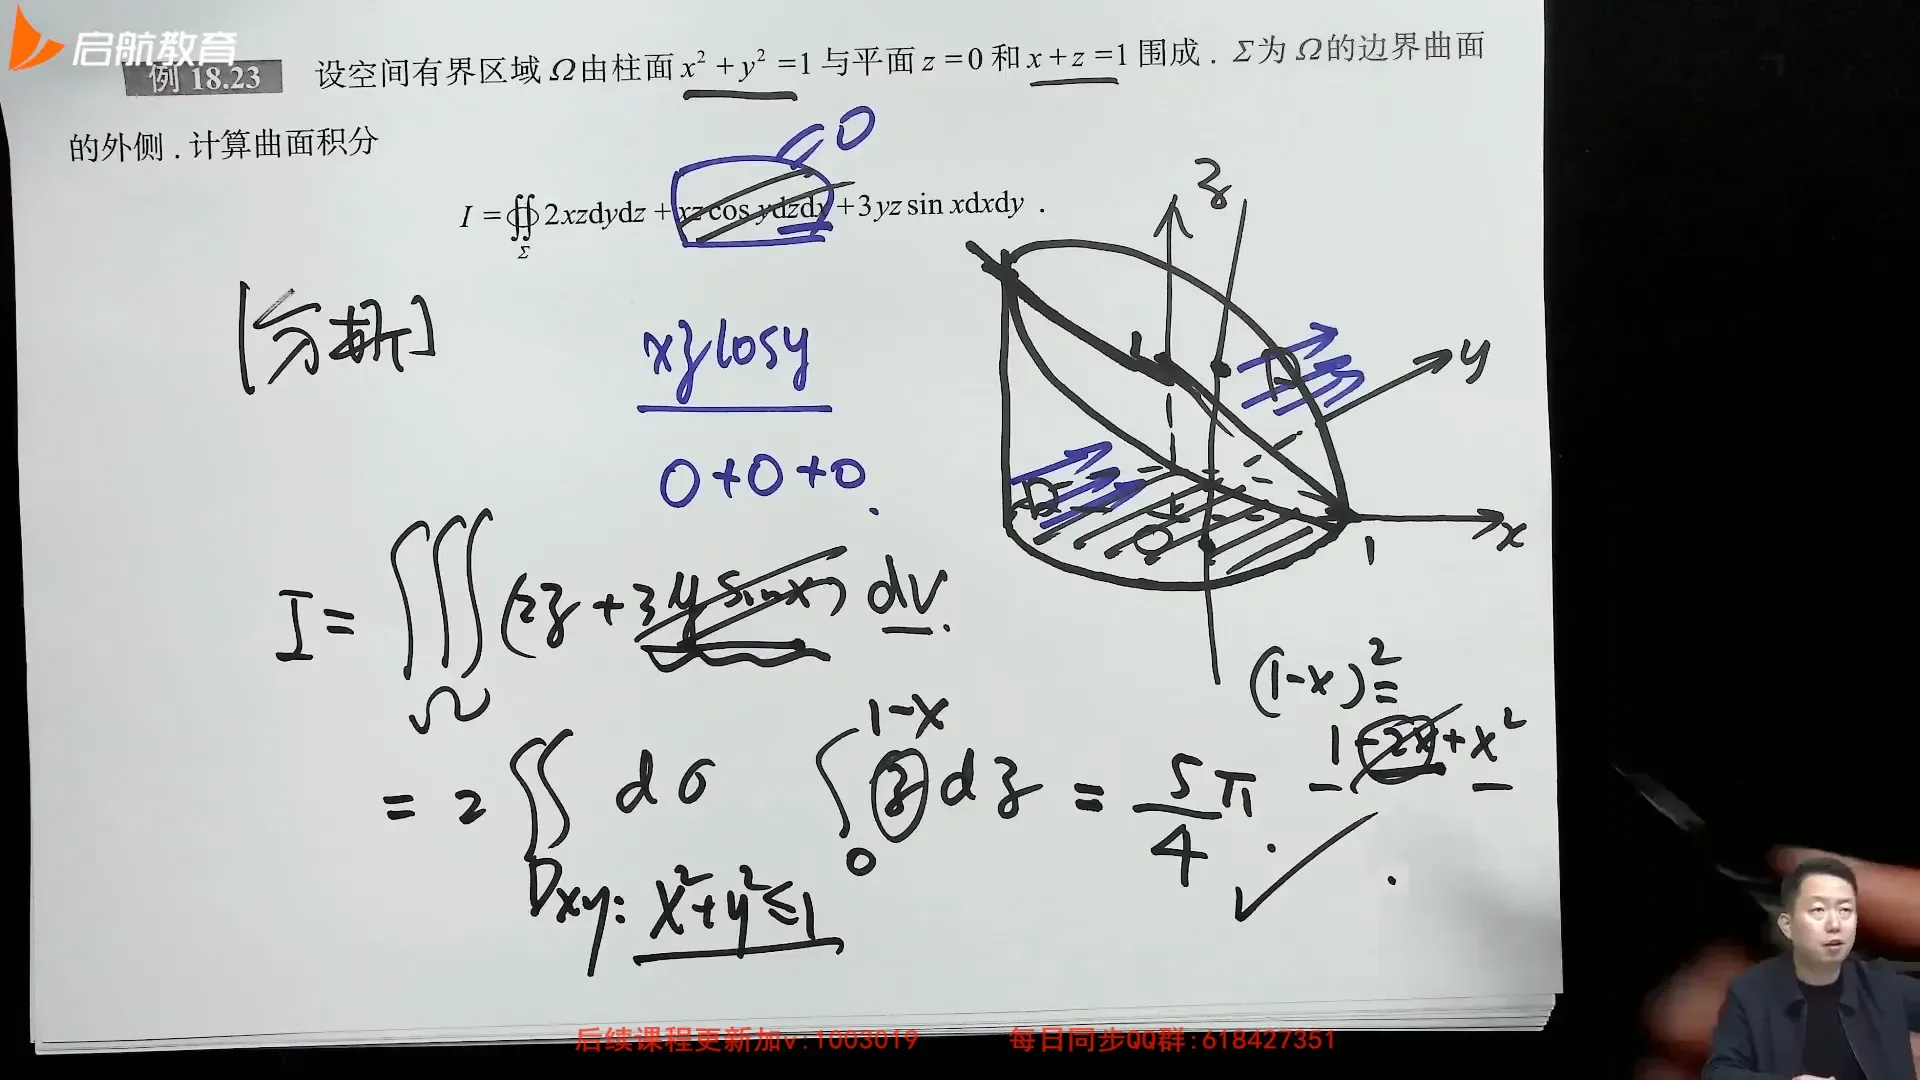 启航教育
例 18.23 设空间有界区域 Ω 由柱面 x² + y² = 1 与平面 z = 0 和 x + z = 1 围成 . Σ 为 Ω 的边界曲面
的外侧 . 计算曲面积分
= 0
I = ∯_Σ 2xzdydz + xz cos ydzdx + 3yz sin xdxdy .
[分析]
xz cosy
0+0+0
I = ∭_Ω (2z + 3y sinx) dv
= 2 ∬_{Dxy: x²+y²≤1} dσ ∫_0^{1-x} z dz = 5π/4 .
(1-x)² =
1 - 2x + x²
z
1
y
x
O
1
后续课程更新加v:1003019 每日同步QQ群:618427351